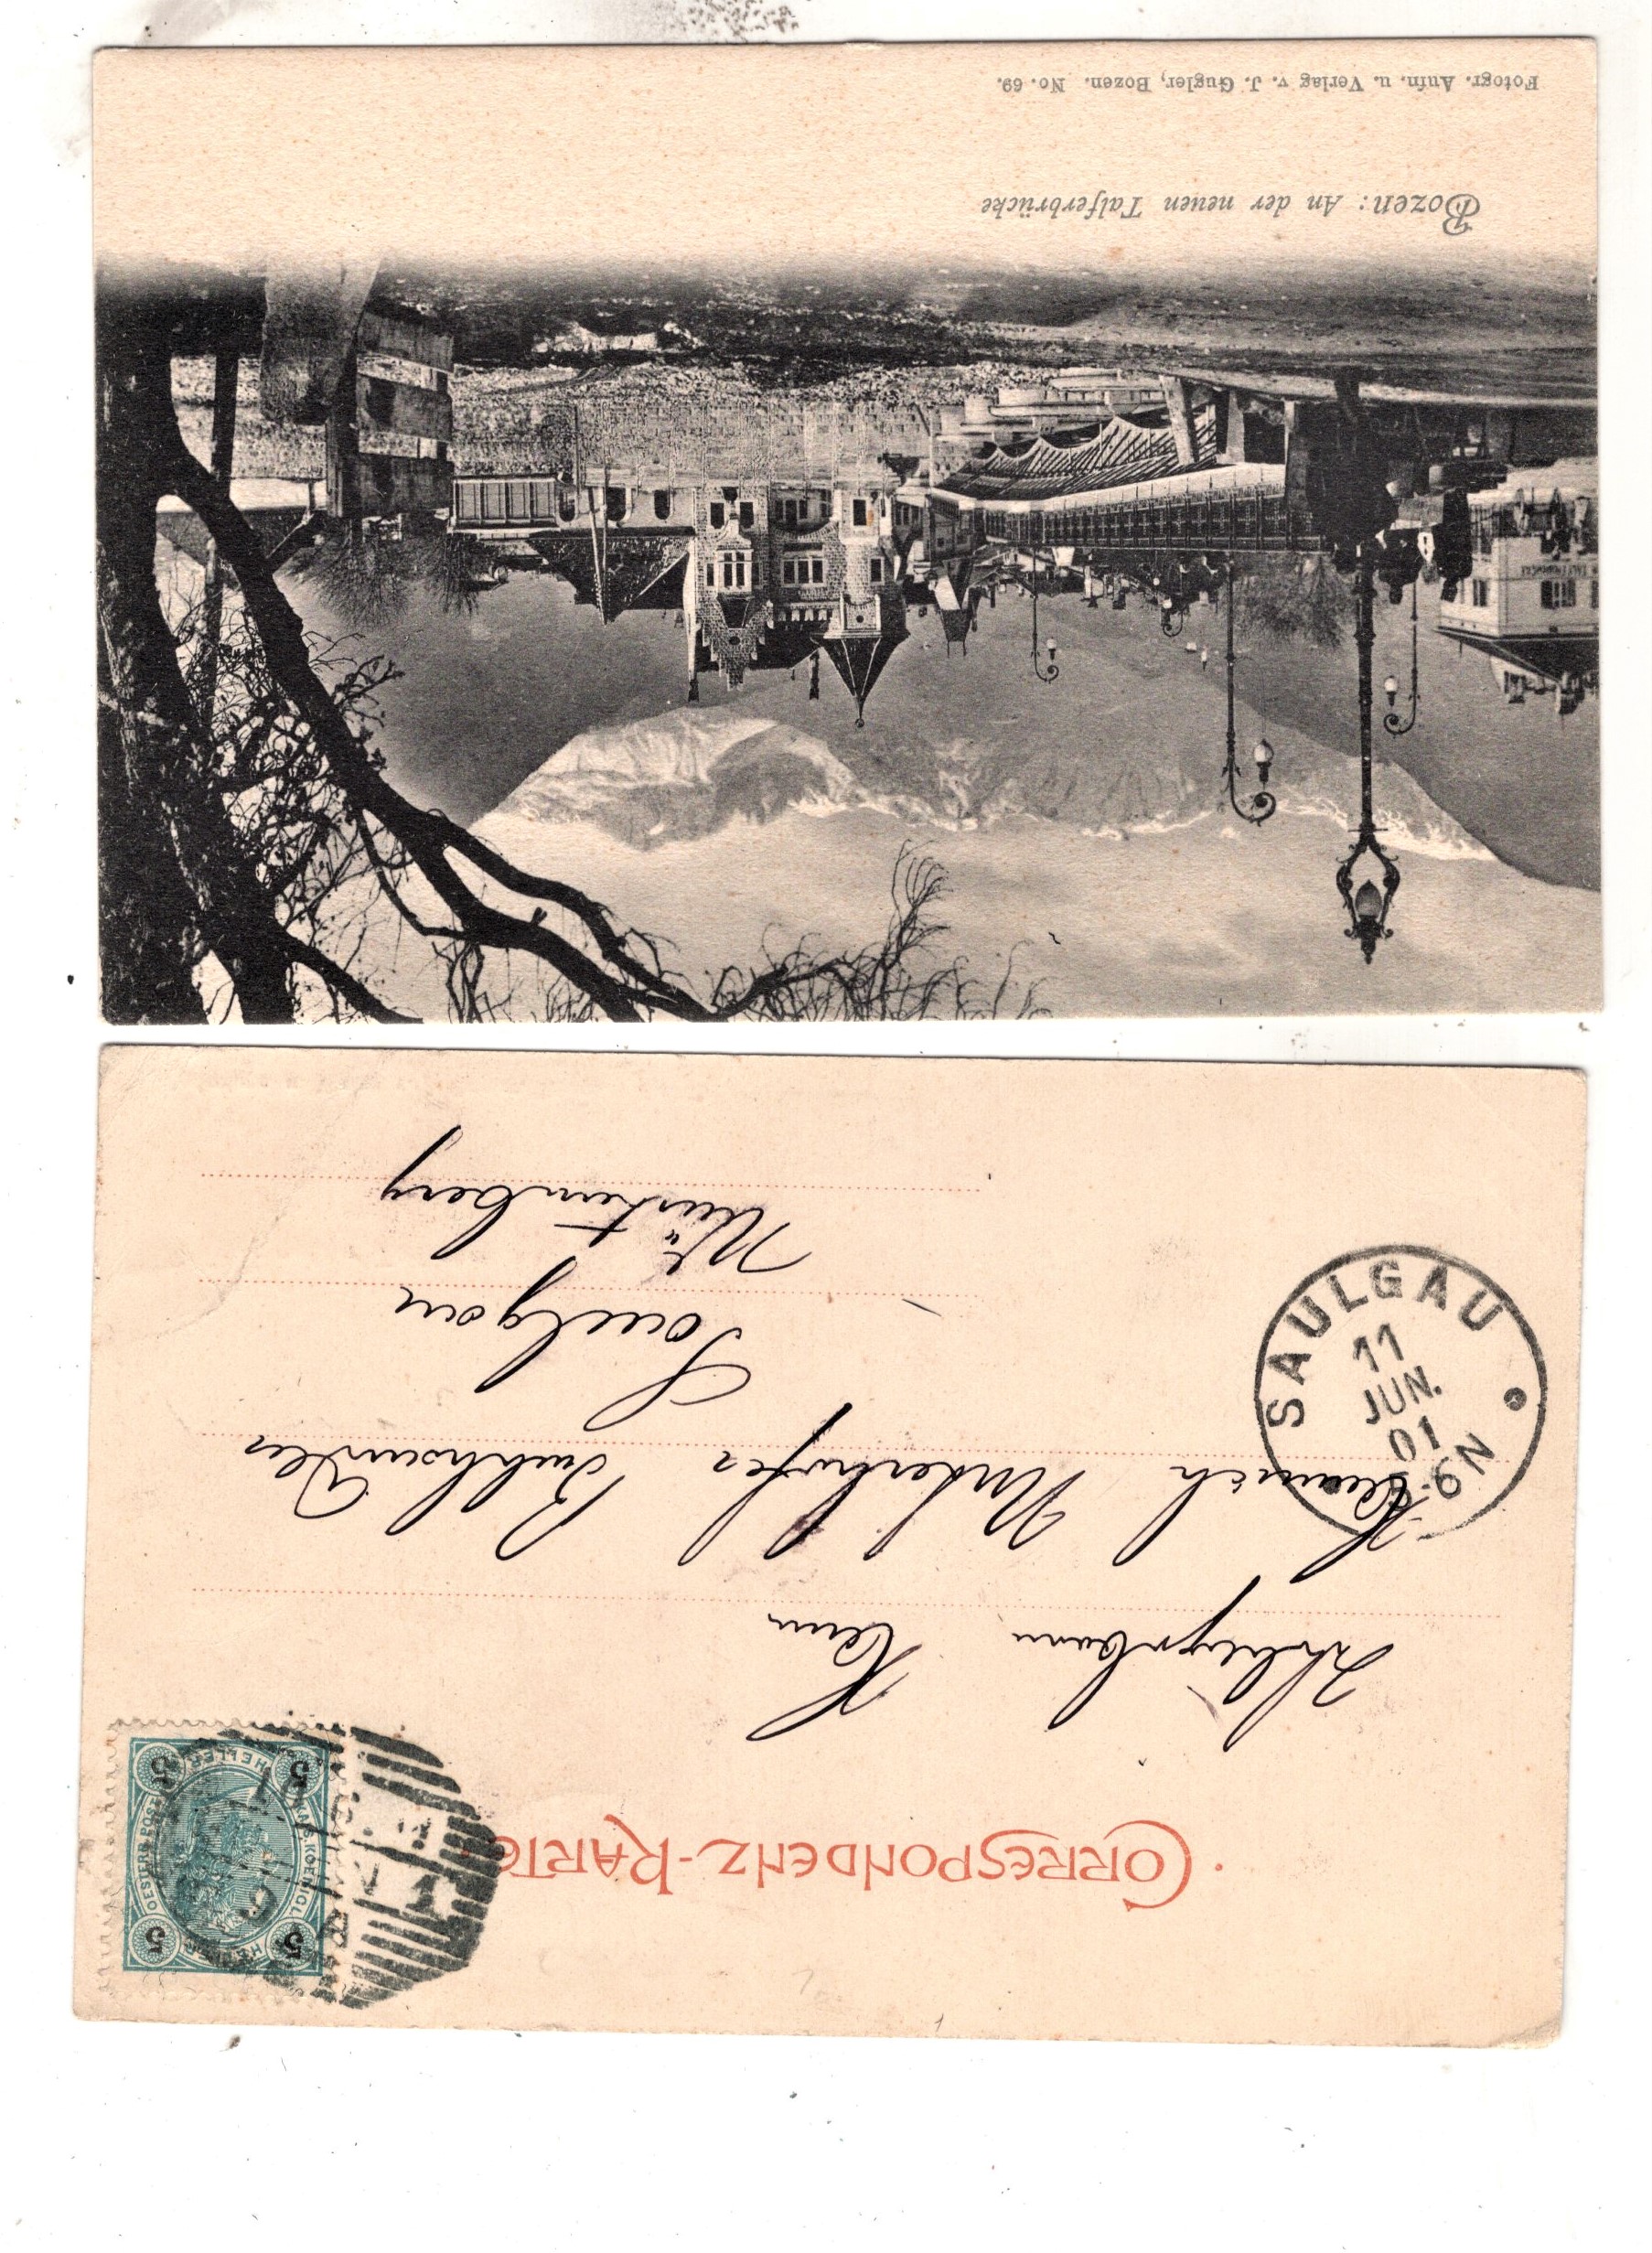 CORRESPONDENZ-KARTE
5 HELLER 5
KAIS. KOENIGL. OESTERR. POST
5 HELLER 5
Wohlgeboren Herrn
Heinrich Unterhofer Buchhändler
Saulgau
Würtemberg
SAULGAU
11
JUN.
01
5-6N
TALFERBRÜCKE
Bozen: An der neuen Talferbrücke
Fotogr. Aufn. u. Verlag v. J. Gugler, Bozen. No. 69.